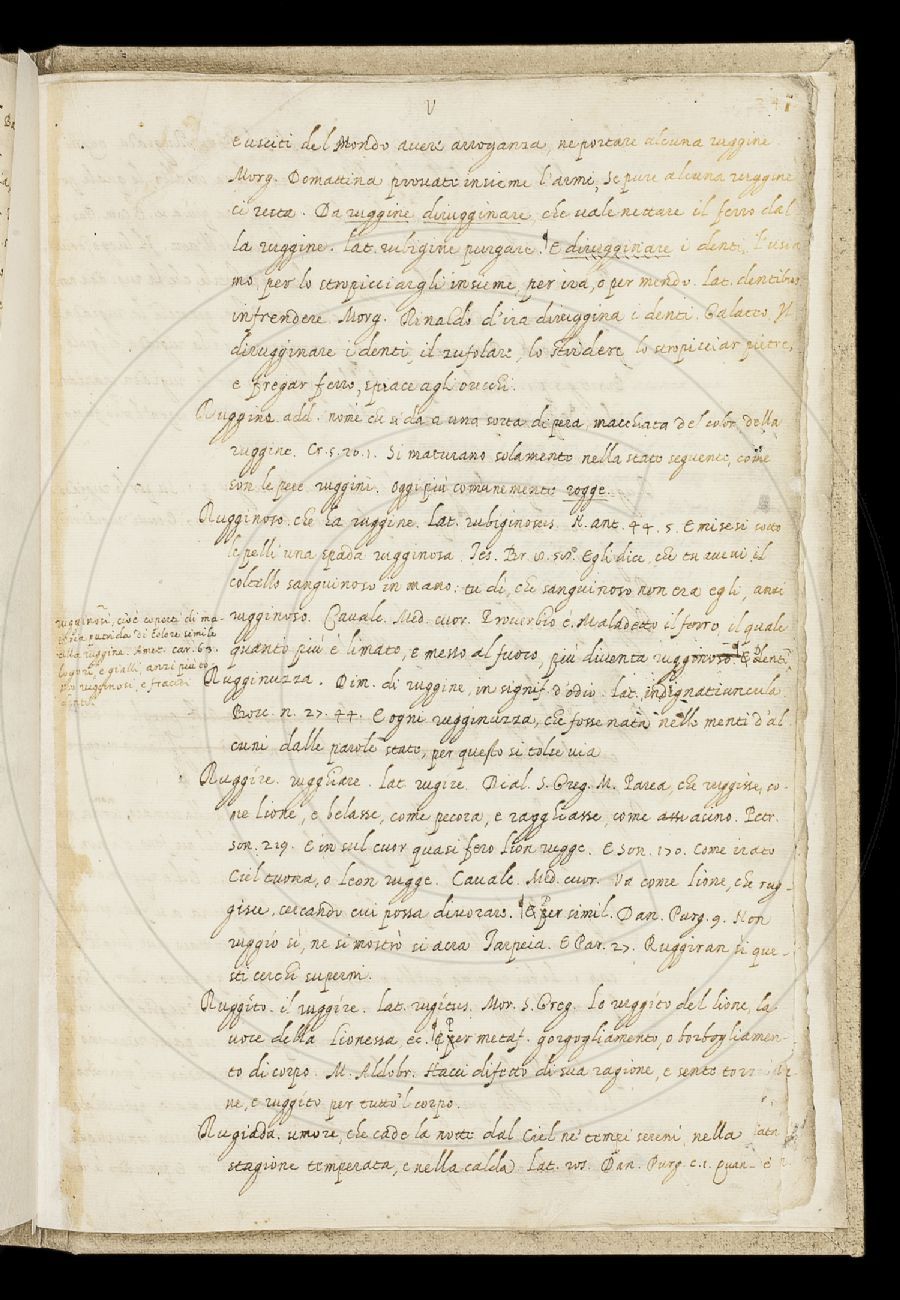 V
e usciti del Mondo avere arroganza, ne portare alcuna ruggine.
Morg. Domattina provate insieme l'arme, se pure alcuna ruggine
ci resta. Da ruggine dirugginare, che vale nettare il ferro dal-
la ruggine. lat. rubigine purgare. E dirugginare i denti, l'usia-
mo, per lo stropicciargli insieme, per ira, o per mendo. Lat. dentibus
infrendere. Morg. Rinaldo d'ira diruggina i denti. Galateo. Il
dirugginare i denti, il zufolare, lo stridere, lo stropicciar pietre,
e fregar ferro, spiace agli orecchi.
Ruggine add. nome che si dà a una sorta di pera, macchiata del color della
ruggine. Cr. 5. 20. 1. Si maturano solamente nella state seguente, come
son le pere ruggini. oggi più comunemente rogge.
Rugginoso. che ha ruggine. Lat. rubiginosus. N. ant. 44. 5. E misesi sotto
le pelli una spada rugginosa. Tes. Br. Egli dice, che tu avevi il
coltello sanguinoso in mano: tu di, che sanguinoso non era egli, anzi
rugginoso. Cavalc. Med. cuor. Proverbio è, Maladetto il ferro, il quale
quanto più è limato, e messo al fuoco, più diventa rugginoso. E denti
rugginosi, cioè coperti di ma-
teria putrida di colore simile
alla ruggine. Amet. car. 63.
logori, e gialli, anzi più to
sto rugginosi, e fracidi
Rugginuzza. Dim. di ruggine, in signif. d'odio. lat. indignatiuncula.
Bocc. n. 27. 44. E ogni rugginuzza, che fosse nata nelle menti d'al-
cuni dalle parole state, per questo si tolse via.
Ruggire. rugghiare. lat. rugire. Dial. S. Greg. M. Parea, che ruggisse, co-
me lione, e belasse, come pecora, e ragghiasse, come assi asino. Petr.
son. 219. E in sul cuor quasi fero lion rugge. E son. 170. Come irato
Ciel tuona, o leon rugge. Cavalc. Med. cuor. Va come lione, che rug-
gisce, cercando cui possa divorare. Per simil. Dan. Purg. 9. Non
ruggio sì, ne si mostrò sì acra Tarpeia. E Par. 27. Ruggiran sì que-
sti cerchi superni.
Ruggito. il ruggire. lat. rugitus. Mor. S. Greg. Lo ruggito del lione, la
voce della lionessa, ec. Per metaf. gorgogliamento, o borbogliamen-
to di corpo. M. Aldobr. Hacci difetto di sua ragione, e sente
ne, e ruggito per tutto'l corpo.
Rugiada. umore, che cade la notte dal Ciel ne' tempi sereni, nella
stagione temperata, e nella calda. Lat. ros. Dan. Purg. c. 1. Quan-